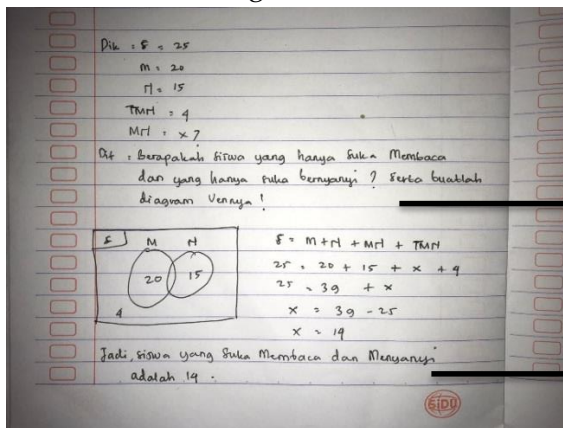 Dik : S = 25
M = 20
N = 15
TMN = 4
MN = x ?
Dit : Berapakah siswa yang hanya suka Membaca
dan yang hanya suka bernyanyi ? serta buatlah
diagram Vennya !
S M N
20 15
4
S = M + N + MN + TMN
25 = 20 + 15 + x + 4
25 = 39 + x
x = 39 - 25
x = 14
Jadi, siswa yang Suka Membaca dan Menyanyi
adalah 14 .
SIDU